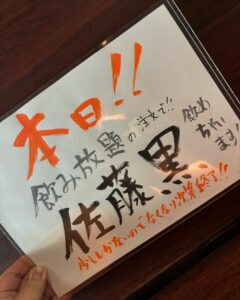 本日!!
飲み放題の注文で!!
佐藤黒
飲め
ちゃい
ます!
少ししかないのでなくなり次第終了!!